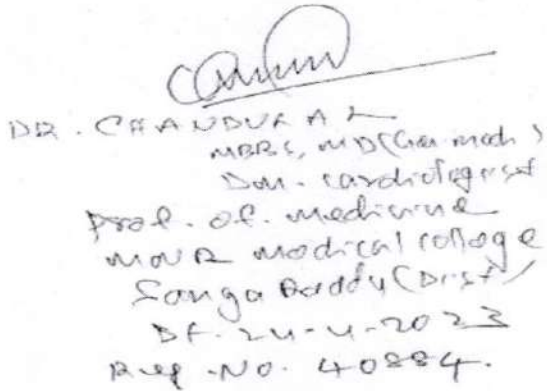 DR. CHANDURAL
MBBS, MD (Gen. medi)
DM. Cardiologist
Prof. of. medicine
MNR medical college
Sanga Reddy (Dist)
Dt. 24-4-2023
Reg. No. 40884.